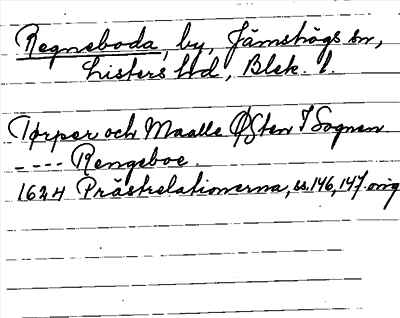 Regneboda, by, Jämshögs sn,
Listers hd, Blek. l.
Torper och Maalle Østen I Sognen
---- Rengeboe.
1624 Prästrelationerna, ss. 146, 147. orig